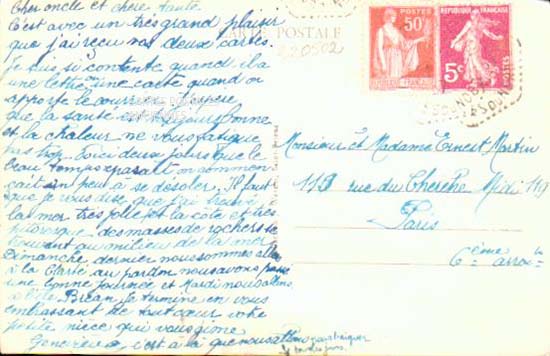 Cher oncle et chère tante
C'est avec un très grand plaisir
que j'ai reçu vos deux cartes.
Je suis si contente quand il a
une lettre une carte quand on
apporte le courrier. J'espère
que la santé est toujours bonne
et la chaleur ne vous fatigue
pas trop. Voici deux jours que le
beau temps on commen
çait un peu a se desoler. Il faut
que je vous dise que j'ai trouvé
la mer très jolie et la côte est très
pittoresque des masses de rochers se
trouvent au milieu de la mer
Dimanche dernier nous sommes allés
à la Clarté au pardon nous avons passé
une bonne journée et Mardi nous allons
à l'île Bréan. Je termine en vous
embrassant de tout cœur votre
petite nièce qui vous
Geneviève c'est à là que nous allons nous baigner
tous les jours.
CARTE POSTALE
220502
POSTES
50
RÉPUBLIQUE FRANÇAISE
5c
Monsieur et Madame Ernest Martin
119 rue du Cherche Midi 119
Paris
6ème arrox